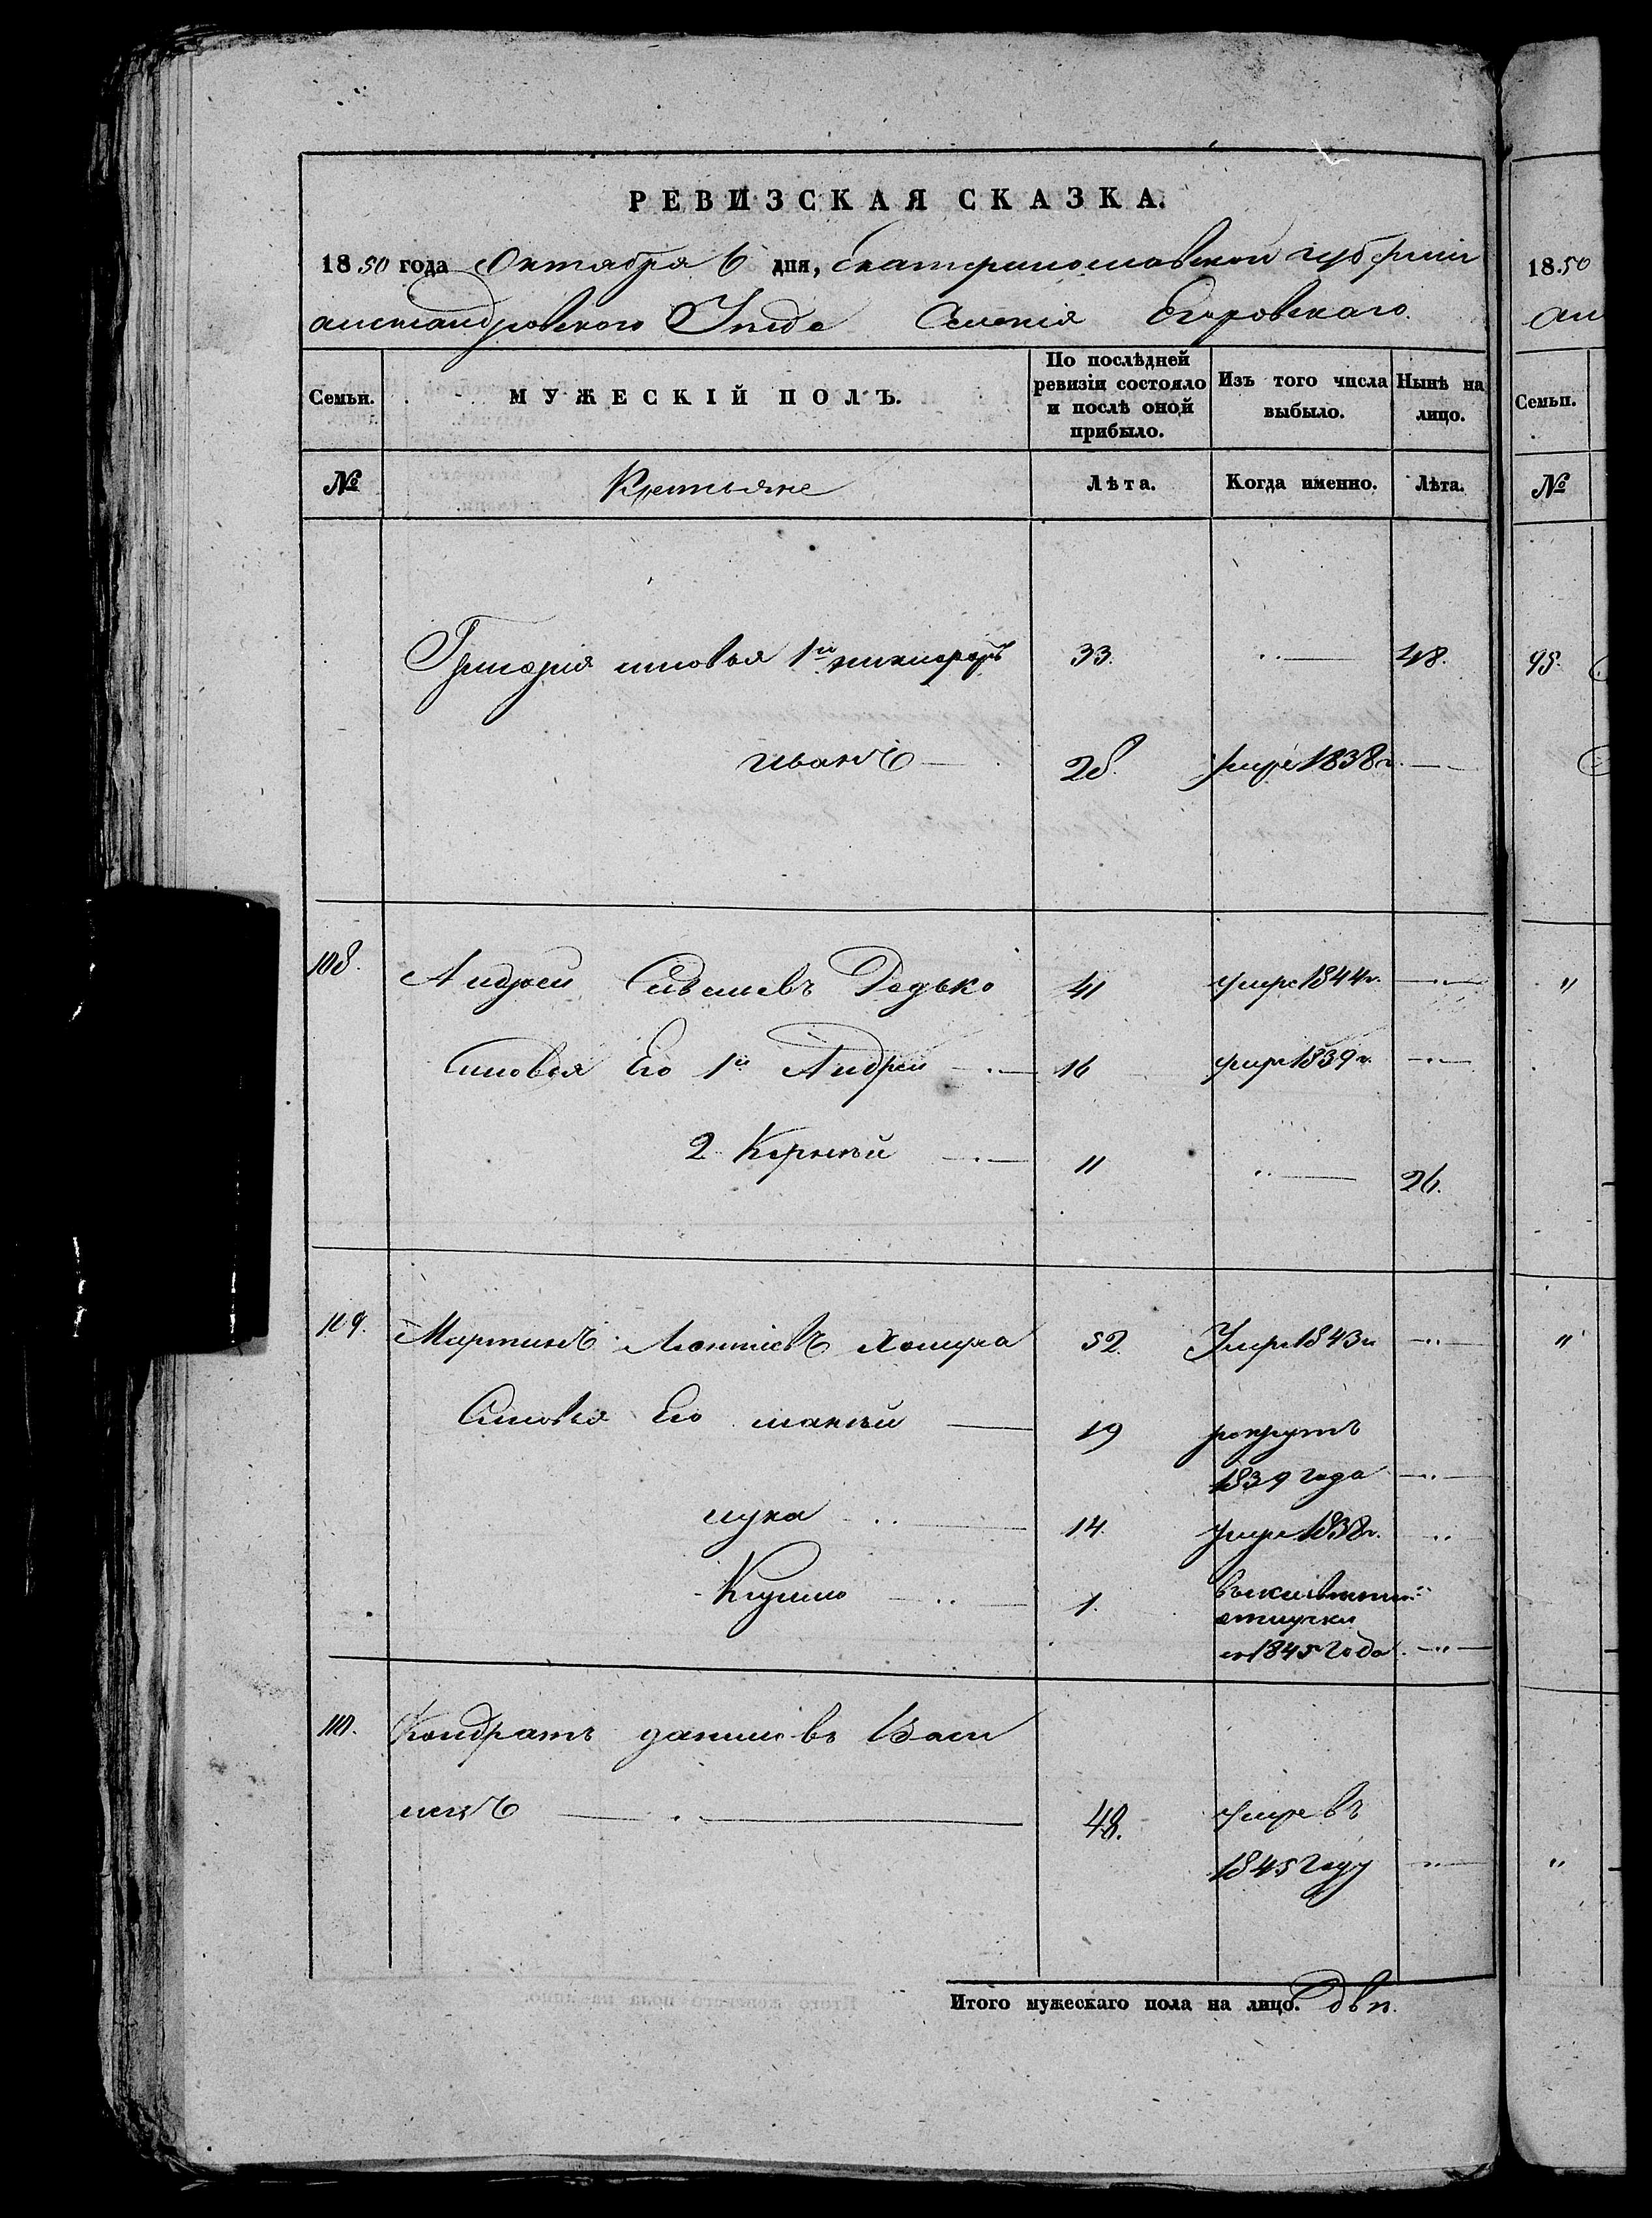 РЕВИЗСКАЯ СКАЗКА.
1850 года Октября 6 дня, Екатеринославской губернiи
александровского Уезда Селенiя Егоровскаго.
Семьи. МУЖЕСКІЙ ПОЛЪ. По послѣдней ревизіи состояло и послѣ оной прибыло. Изъ того числа выбыло. Нынѣ на лицо.
№ Крестьяне Лѣта. Когда именно. Лѣта.
Григорiя сыновья 1й никифоръ 33. 48.
иванъ 28. умре 1838 г.
108. Андрей Савельевъ Дедько 41 умре 1844 г.
Сыновья Его 1й Андрей 16 умре 1839 г.
2 Корнѣй 11 26.
109. Мартинъ Леонтiевъ Хомуха 52. Умре 1843 г
Сыновья Его макѣй 19 рекрутъ
1839 года
лука 14 умре 1838 г.
Клумо 1.
отлучки
съ 1845 года
110. Кондратъ даниловъ Васи
ленъ 48. умре въ
1845 году
Итого мужескаго пола на лицо. Два.
1850
ал
Семьи.
№
95.